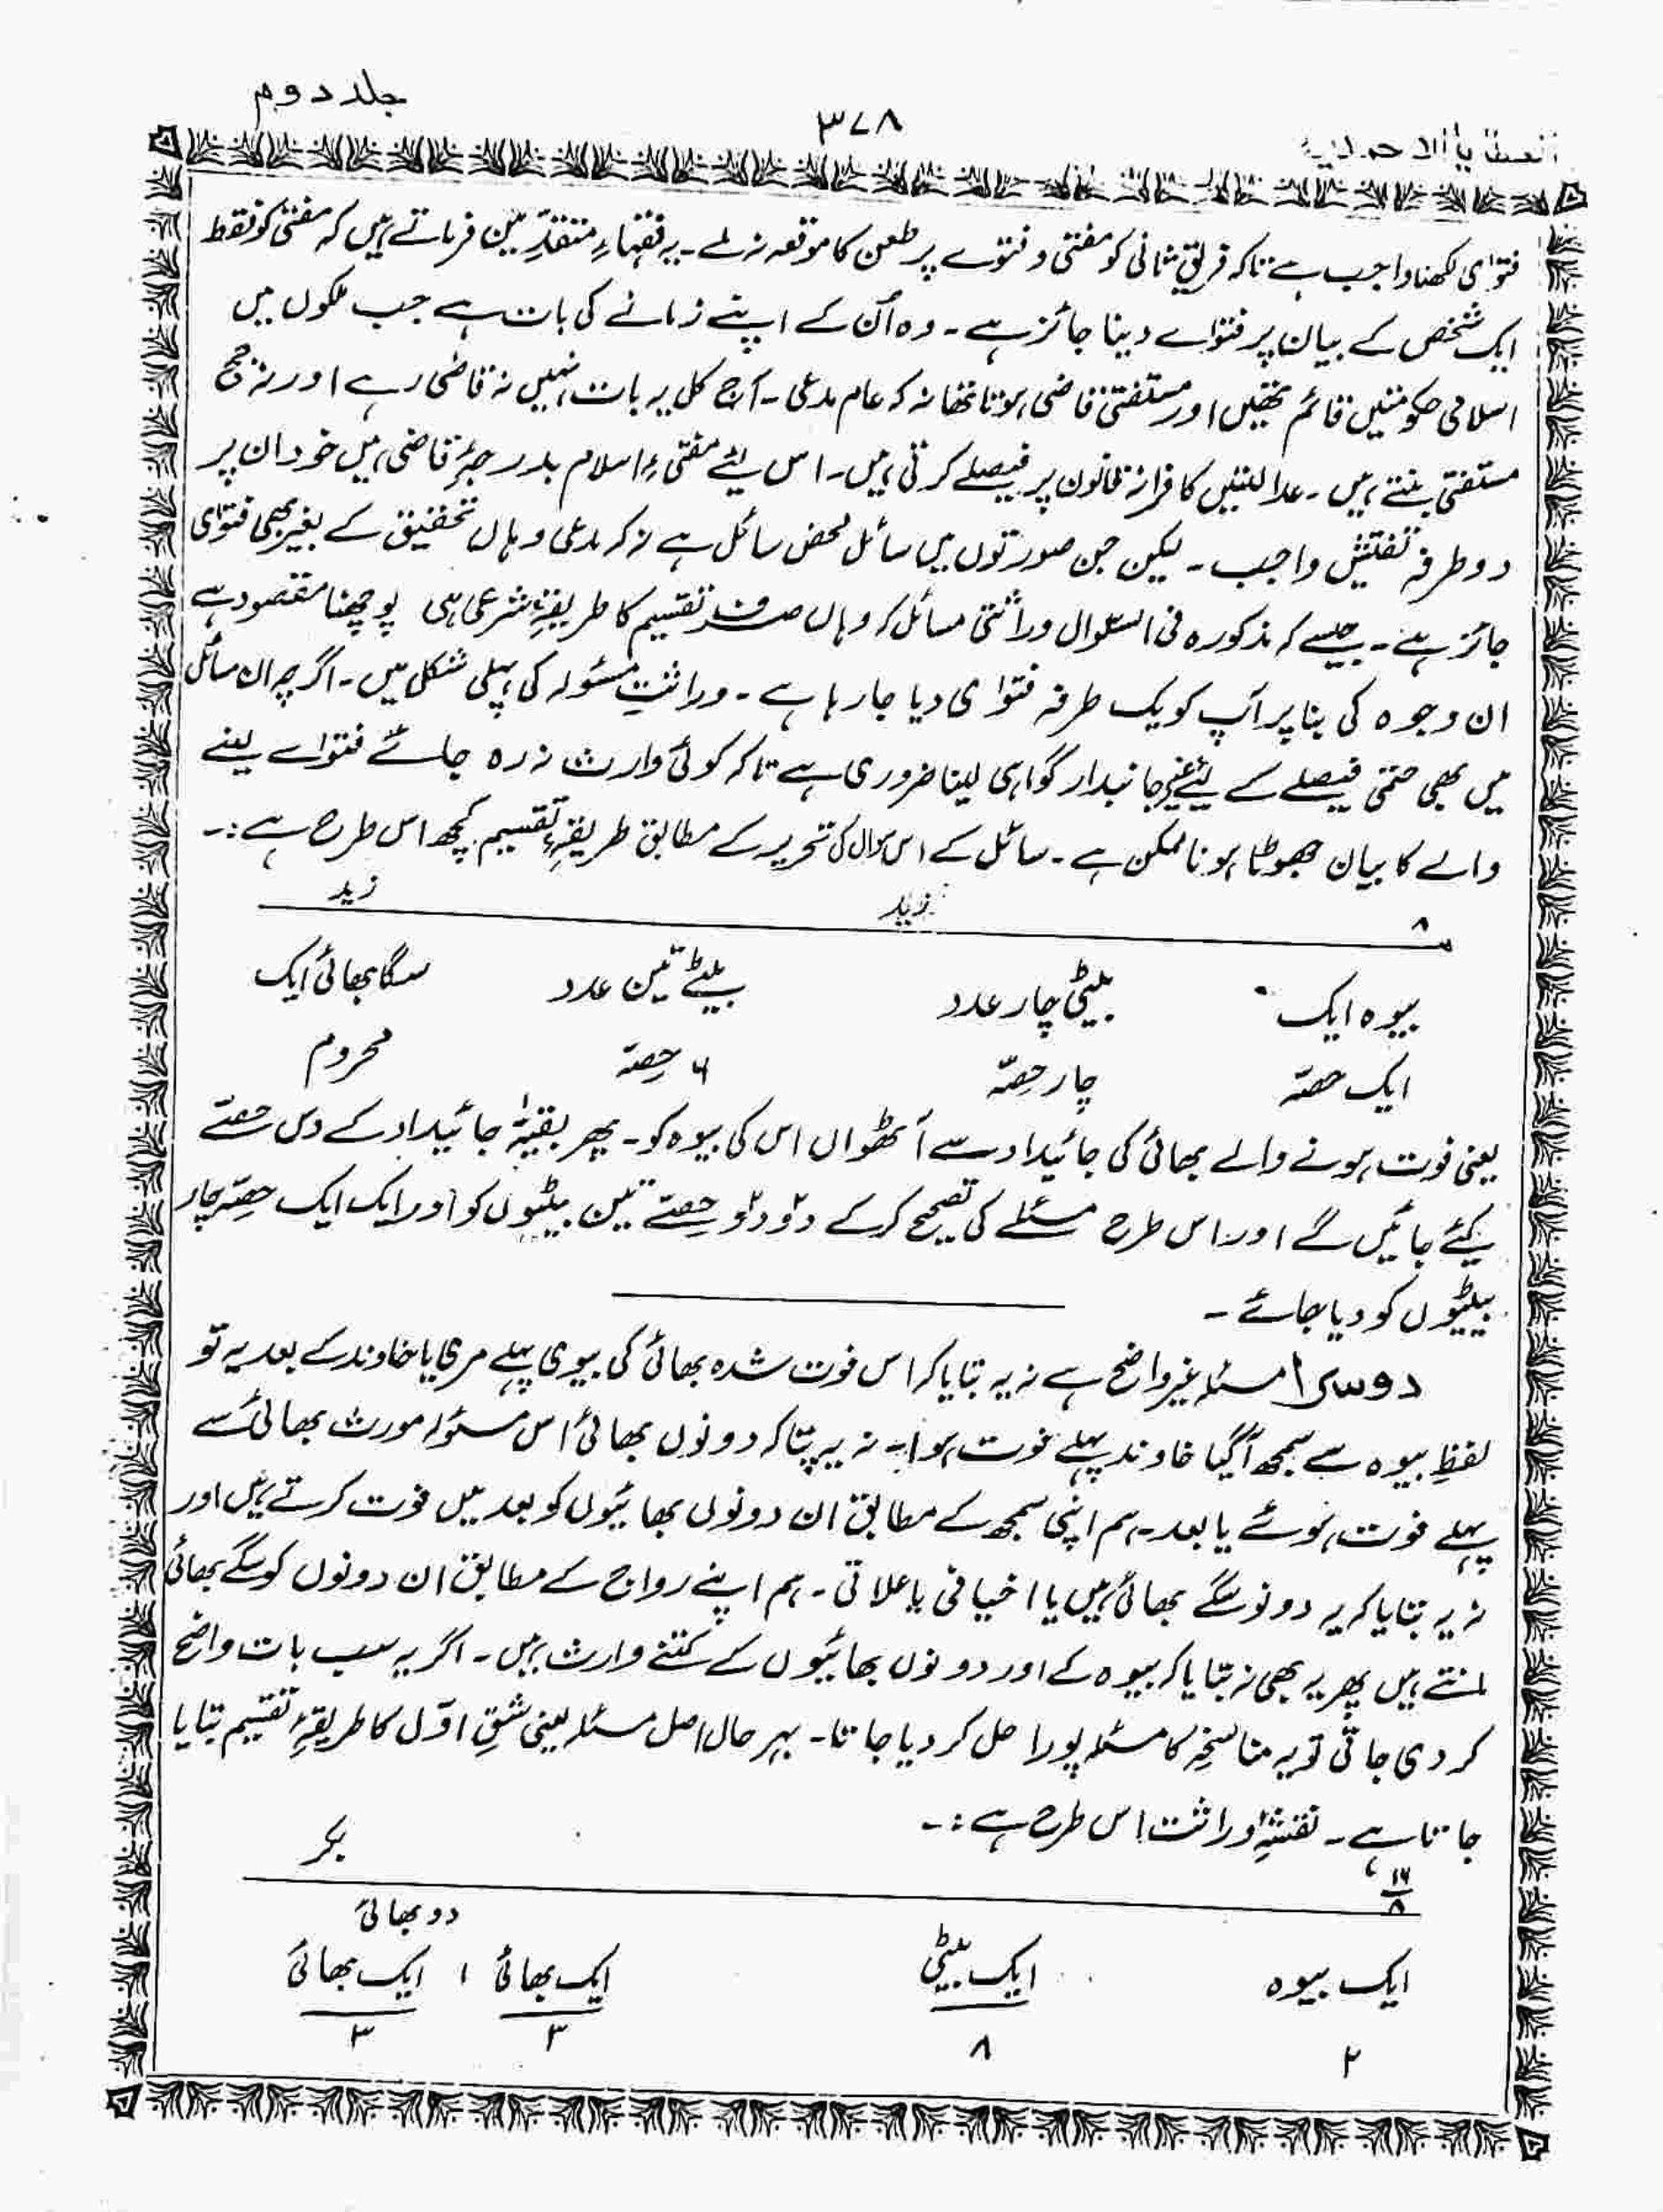 جلد دوم
۳۷۸
العطایا الاحمدیہ
فتوٰی لکھنا واجب ہے تاکہ فریق ثانی کو مفتی و فتوے پر طعن کا موقعہ نہ ملے۔ یہ فقہاءِ متقدّمین فرماتے ہیں کہ مفتی کو فقط
ایک شخص کے بیان پر فتوٰے دینا جائز ہے۔ وہ اُن کے اپنے زمانے کی بات ہے جب ملکوں میں
اسلامی حکومتیں قائم تھیں اور مستفتی قاضی ہوتا تھا نہ کہ عام مدعی۔ آج کل یہ بات نہیں نہ قاضی رہے اور نہ جج
مستفتی بنتے ہیں۔ عدالتیں کافرانہ قانون پر فیصلے کرتی ہیں۔ اس لیئے مفتیءِ اسلام بدرجۂ قاضی ہیں خود ان پر
دو طرفہ تفتیش واجب۔ لیکن جن صورتوں میں سائل محض سائل ہے نہ کہ مدعی وہاں تحقیق کے بغیر بھی فتوٰی
جائز ہے۔ جیسے کہ مذکورہ فی السّوال وراثتی مسائل کہ وہاں صرف تقسیم کا طریقۂ شرعی ہی پوچھنا مقصود ہے
ان وجوہ کی بنا پر آپ کو یک طرفہ فتوٰی دیا جا رہا ہے۔ وراثتِ مسئولہ کی پہلی شکل میں۔ اگرچہ ان مسائل
میں بھی حتمی فیصلے کے لیئے غیر جانبدار گواہی لینا ضروری ہے تاکہ کوئی وارث نہ رہ جائے فتوٰے لینے
والے کا بیان جھوٹا ہونا ممکن ہے۔ سائل کے اس سوال کی تحریر کے مطابق طریقۂِ تقسیم کچھ اس طرح ہے:۔
۸ زید زید
بیوہ ایک بیٹی چار عدد بیٹے تین عدد سگا بھائی ایک
ایک حصّہ چار حِصّہ ۶ حِصّہ محروم
یعنی فوت ہونے والے بھائی کی جائیداد سے آٹھواں اس کی بیوہ کو۔ پھر بقیہ جائیداد کے دس حصّے
کیئے جائیں گے اور اس طرح مسئلے کی تصحیح کر کے دو دو حِصّے تین بیٹوں کو اور ایک ایک حِصّہ چار
بیٹیوں کو دیا جائے۔
دوسرا مسئلہ غیر واضح ہے نہ یہ بتایا کہ اس فوت شدہ بھائی کی بیوی پہلے مری یا خاوند کے بعد یہ تو
لفظِ بیوہ سے سمجھ آ گیا خاوند پہلے فوت ہوا۔ نہ یہ پتا کہ دونوں بھائی اس مسئولہ مورث بھائی سے
پہلے فوت ہوئے یا بعد۔ ہم اپنی سمجھ کے مطابق ان دونوں بھائیوں کو بعد میں فوت کرتے ہیں اور
نہ یہ بتایا کہ یہ دونوں سگے بھائی ہیں یا اخیافی یا علاتی۔ ہم اپنے رواج کے مطابق ان دونوں کو سگے بھائی
مانتے ہیں پھر یہ بھی نہ بتایا کہ بیوہ کے اور دونوں بھائیوں کے کتنے وارث ہیں۔ اگر یہ سب بات واضح
کر دی جاتی تو یہ مناسخہ کا مسئلہ پورا حل کر دیا جاتا۔ بہر حال اصل مسئلہ یعنی شقِ اوّل کا طریقۂِ تقسیم بتایا
جاتا ہے۔ نقشۂِ وراثت اس طرح ہے:۔
۱۶
۸ بکر
دو بھائی
ایک بیوہ ایک بیٹی ایک بھائی ، ایک بھائی
۲ ۸ ۳ ۳